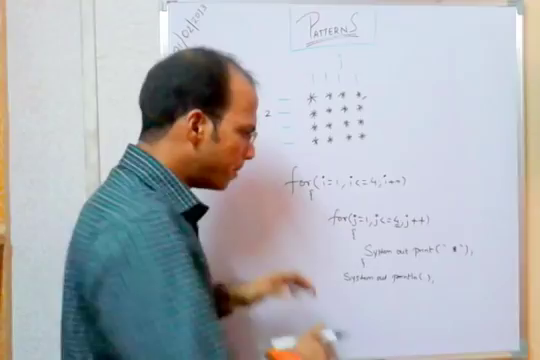 01/02/2013
PATTERNS
* * * *
2
* * * *
* * * *
* * * *
for(i=1, i<=4, i++)
{
for(j=1, j<=4, j++)
{
System out print(" * "),
}
System out println( ),